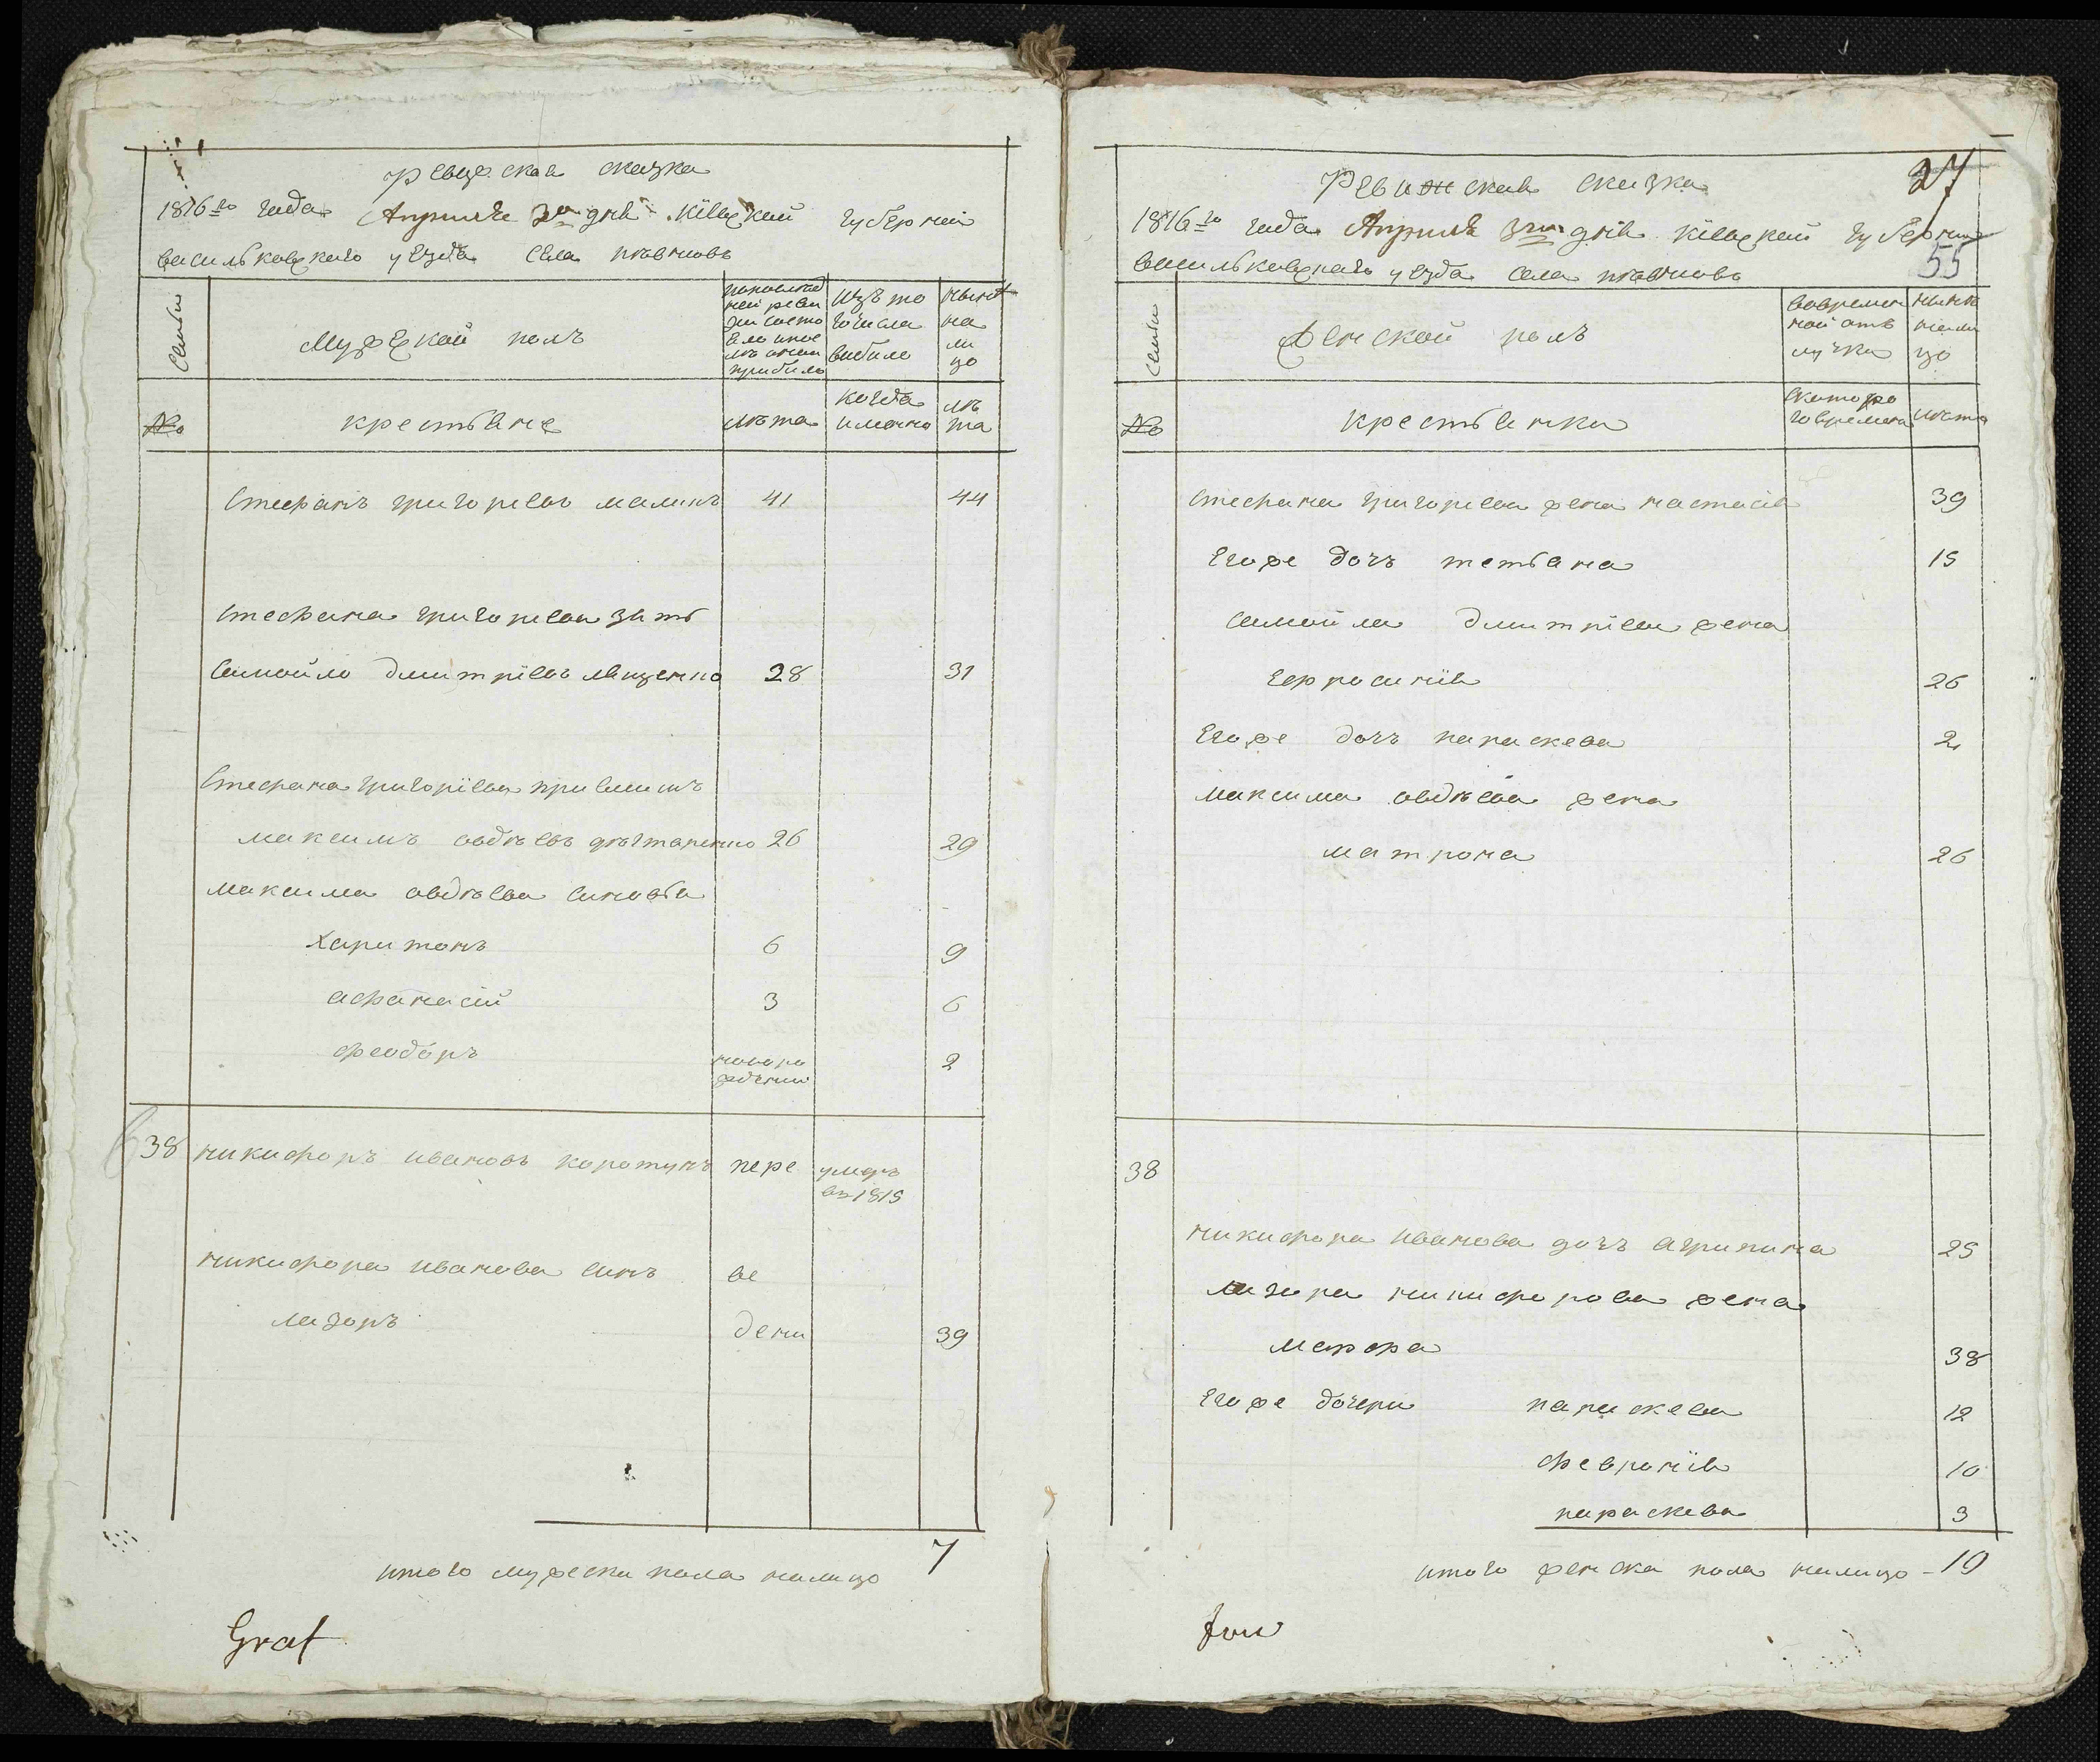 ревизская сказка
1816го года Апреля 3го дня Кіевской губерніи
васильковскаго уезда села пѣвновъ
Семьи
Мужеской полъ
Изъ то
го числа
выбыло
ныне
на
ли
цо
№
крестьяне
лѣта
когда
именно
лѣ
та
Стефанъ григорьевъ маликъ 41 44
Стефана григорьева зять
Самойло дмитріевъ 28 31
Стефана григоріева
максимъ авдѣевъ 26 29
максима авдѣева синовья
харитонъ 6 9
афанасій 3 6
феодоръ новоро
жденни 2
38 никифоръ ивановъ коротунъ пере умеръ
въ 1815
никифора иванова синъ ве
лазоръ дени 39
итого мужеска пола налицо 7
Graf
Ревижская сказка 27
1816го года Апреля 3го дня кіевской губерніи
55
васильковскаго уезда села пѣвновъ
Семьи
женской полъ
вовремен
ной отъ
лучки
нынѣ
нали
цо
№
крестьянки
скоторо
го времени
лѣта
Стефана григорьева жена настасія 39
Его же дочъ тетьяна 15
Самойла дмитріева жена
Ефросинія 26
Его же дочъ параскева 2
максима авдѣева жена
матрона 26
38
никифора иванова дочъ агрипина 25
лазора никифорова жена
марфа 38
Его же дочери параскева 12
февронія 10
параскева 3
итого женска пола налицо - 10